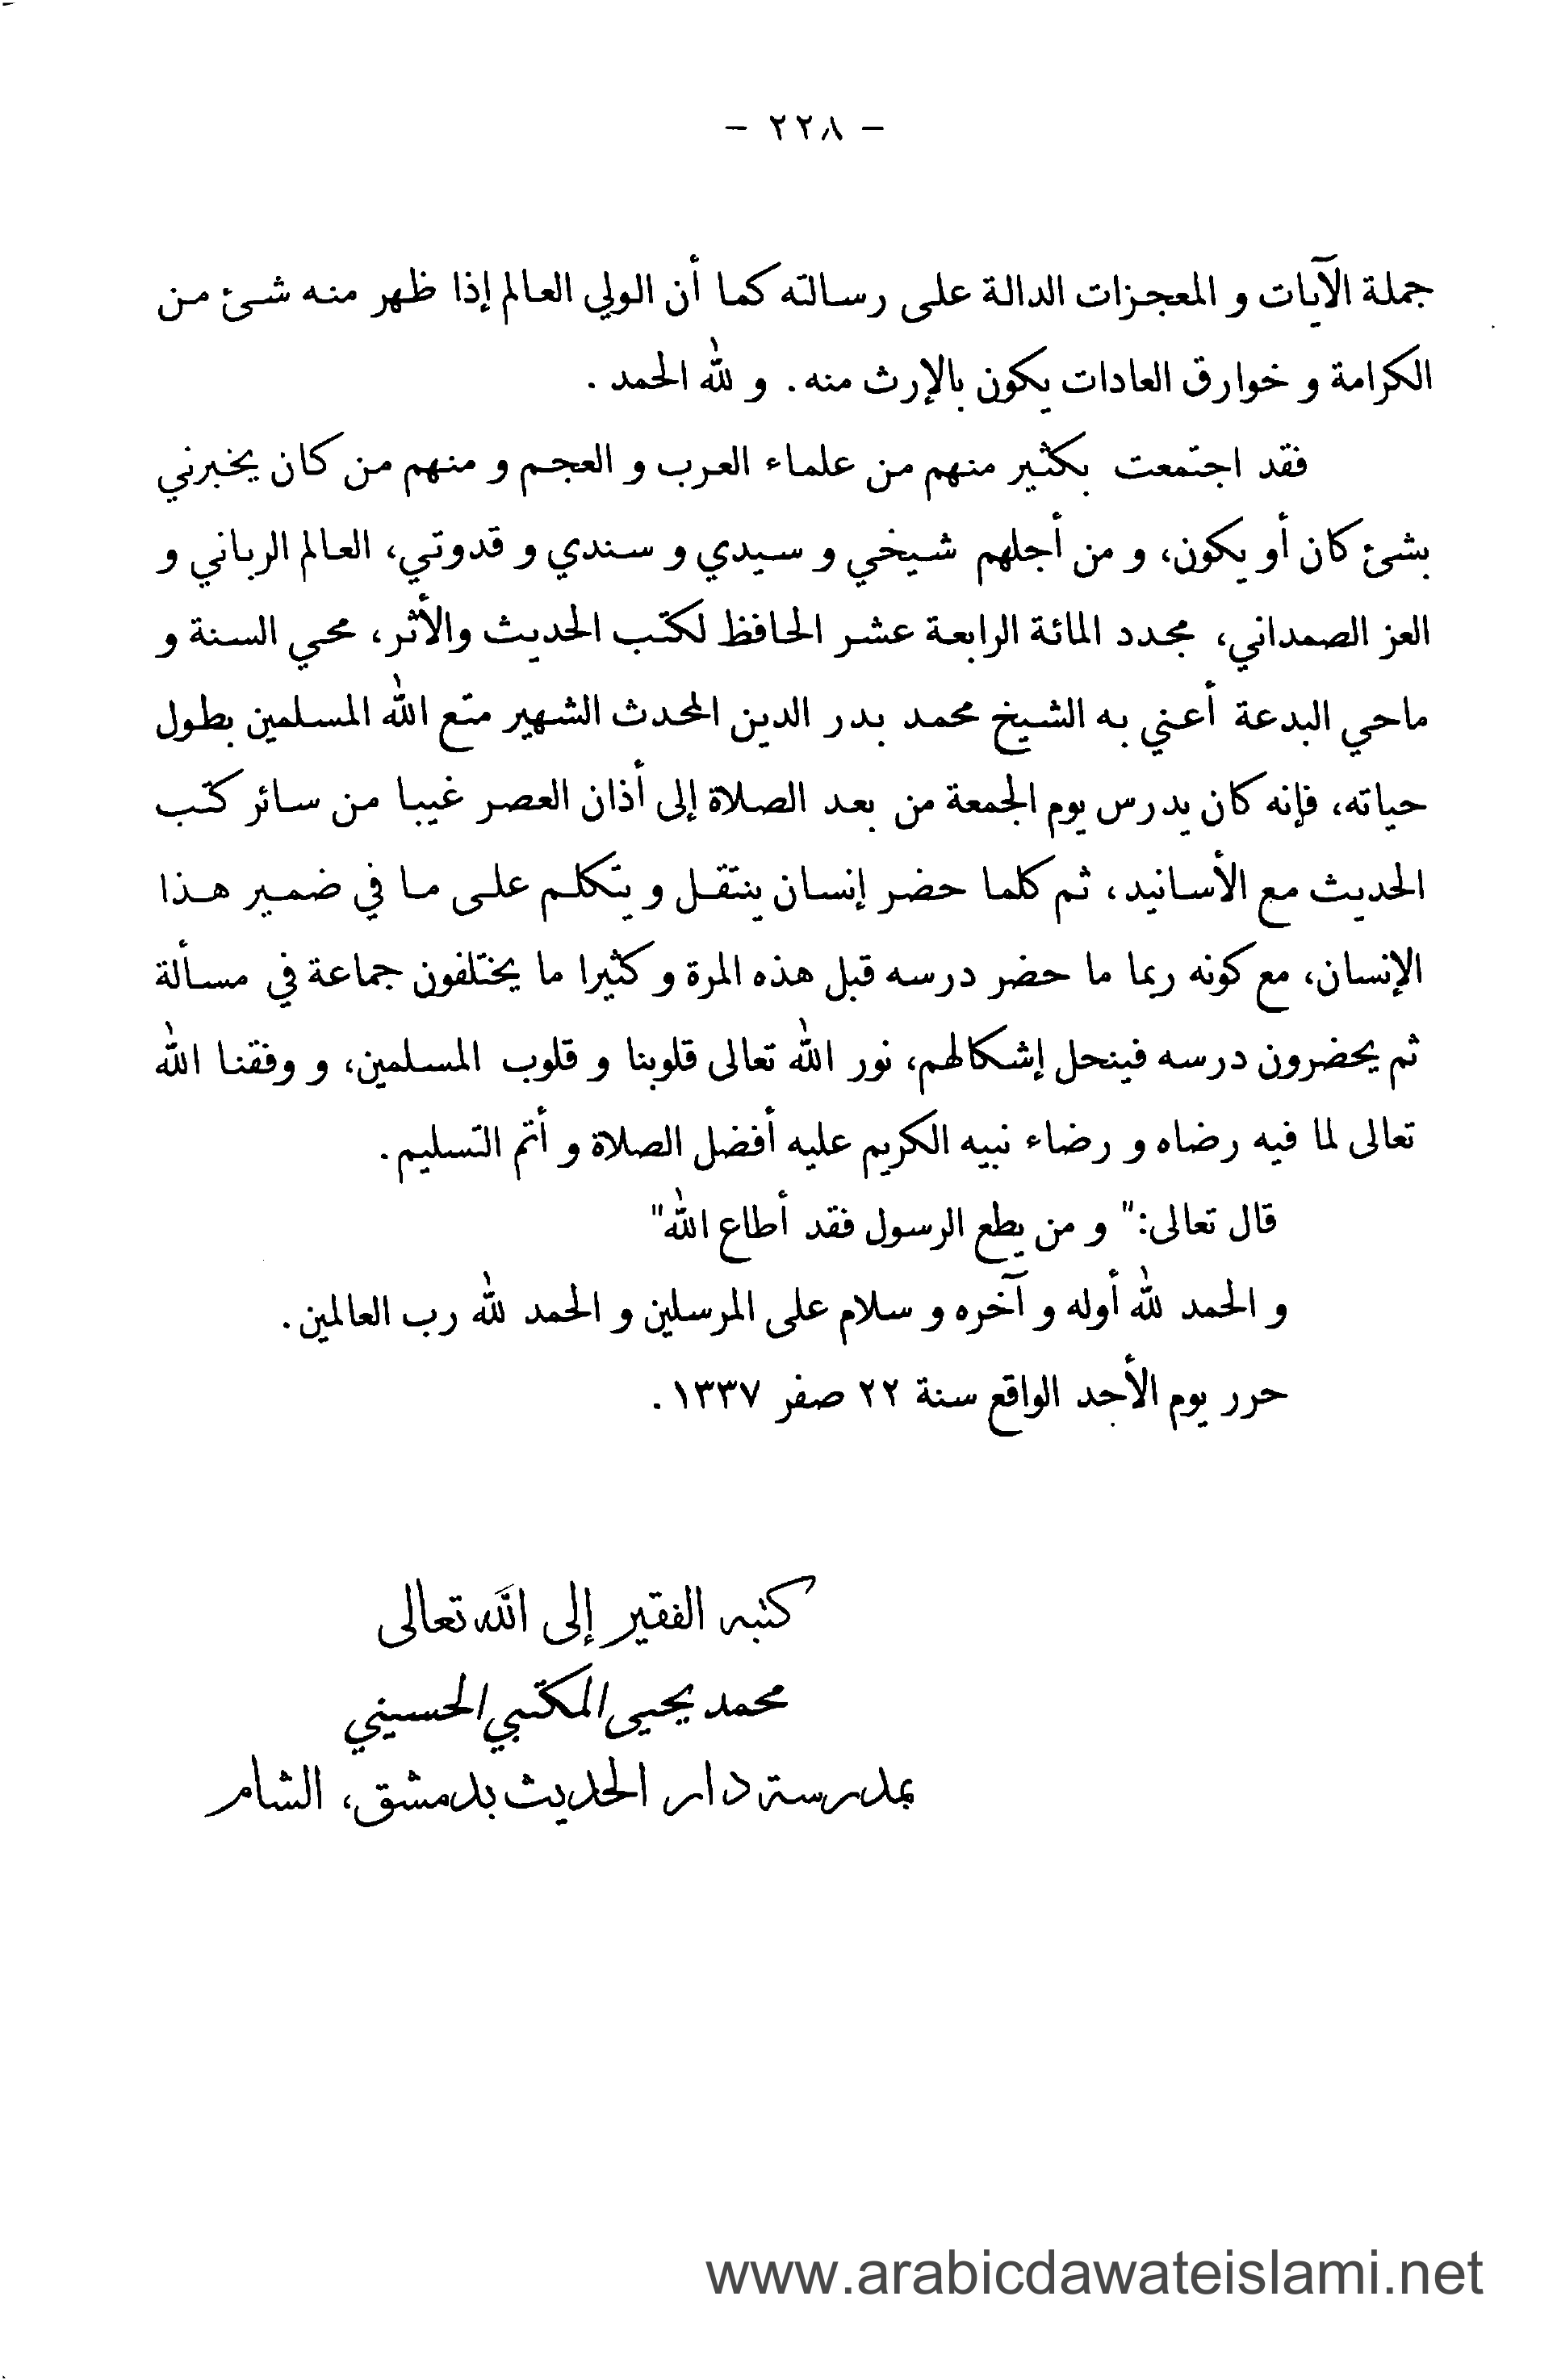 - ٢٢٨ -
جملة الآيات و المعجزات الدالة على رسالته كما أن الولي العالم إذا ظهر منه شئ من
الكرامة و خوارق العادات يكون بالإرث منه. و لله الحمد .
فقد اجتمعت بكثير منهم من علماء العرب و العجم و منهم من كان يخبرني
بشئ كان أو يكون، و من أجلهم شيخي و سيدي و سندي و قدوتي، العالم الرباني و
العز الصمداني، مجدد المائة الرابعة عشر الحافظ لكتب الحديث والأثر، محي السنة و
ماحي البدعة أعني به الشيخ محمد بدر الدين المحدث الشهير متع الله المسلمين بطول
حياته، فإنه كان يدرس يوم الجمعة من بعد الصلاة إلى أذان العصر غيبا من سائر كتب
الحديث مع الأسانيد، ثم كلما حضر إنسان ينتقل و يتكلم على ما في ضمير هذا
الإنسان، مع كونه ربما ما حضر درسه قبل هذه المرة و كثيرا ما يختلفون جماعة في مسألة
ثم يحضرون درسه فينحل إشكالهم، نور الله تعالى قلوبنا و قلوب المسلمين، و وفقنا الله
تعالى لما فيه رضاه و رضاء نبيه الكريم عليه أفضل الصلاة و أتم التسليم.
قال تعالى:" و من يطع الرسول فقد أطاع الله"
و الحمد لله أوله و آخره و سلام على المرسلين و الحمد لله رب العالمين.
حرر يوم الأحد الواقع سنة ٢٢ صفر ١٣٣٧.
كتبه الفقير إلى الله تعالى
محمد يحيى المكتبي الحسيني
بمدرسة دار الحديث بدمشق، الشام
www.arabicdawateislami.net